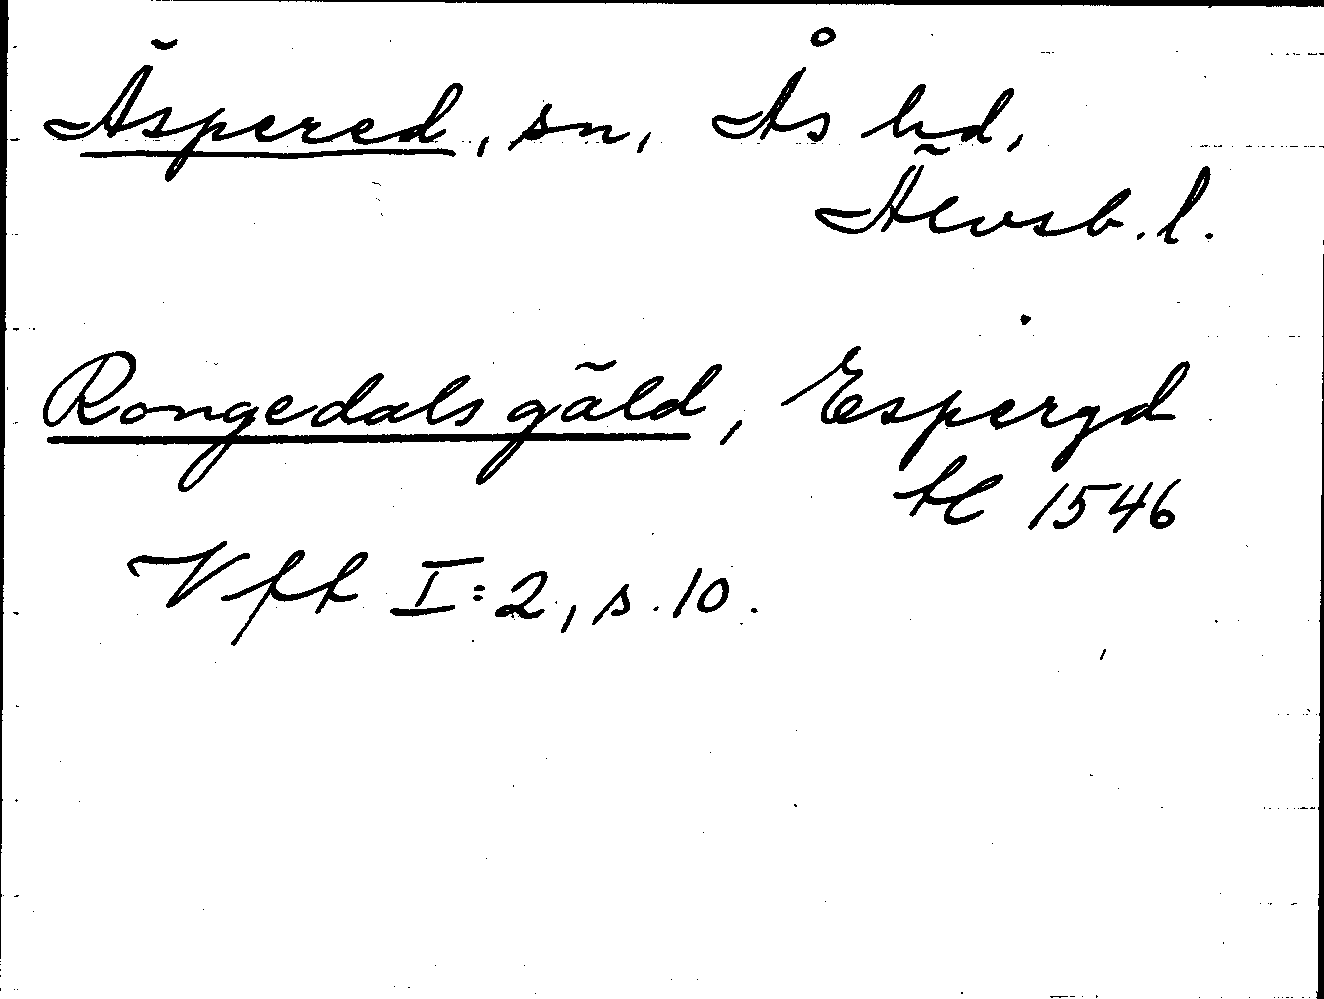 Äspered, sn, Ås hd,
Älvsb. l.
Rongedals gäld, Espergd
tl 1546
Vff I:2, s. 10.